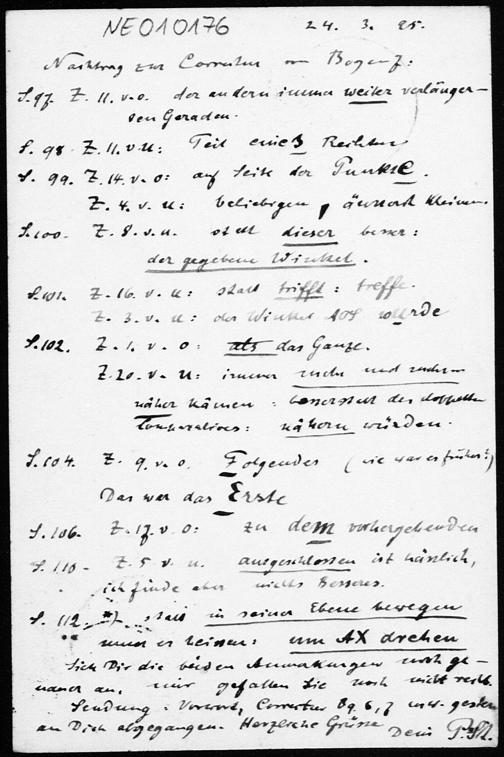 NE010176
24. 3. 25.
Nachtrag zur Correctur von Bogen 7:
S. 97. Z. 11. v. o. der andern immer weiter verlänger-
ten Geraden.
S. 98. Z. 11. v. u: Teil eines Rechten
S. 99. Z. 14. v. o: auf Seite der Punkte.
Z. 4. v. u: beliebigen, äusserst kleinen.
S. 100. Z. 8. v. u. statt dieser besser:
der gegebene Winkel.
S. 101. Z. 16. v. u: statt trifft: treffe.
Z. 3. v. u: der Winkel wurde
S. 102. Z. 1. v. o: als das Ganze.
Z. 20. v. u: immer mehr und mehr
näher kämen: besser statt des doppelten
Comparatives: nähern würden.
S. 104. Z. 9. v. o. Folgendes (wie war es früher?)
Das war das Erste
S. 106. Z. 17. v. o: zu dem vorhergehenden
S. 110 Z. 5 v. u. ausgeschlossen ist hässlich,
ich finde aber nichts Besseres.
S. 112. *) statt in seiner Ebene bewegen
muss es heissen: um AX drehen
Sieh Dir die beiden Anmerkungen noch ge-
nauer an, mir gefallen sie noch nicht recht.
Sendung: Vorwort, Correctur Bg. 6, 7 usw. gestern
an Dich abgegangen. Herzliche Grüsse
Dein P. St.